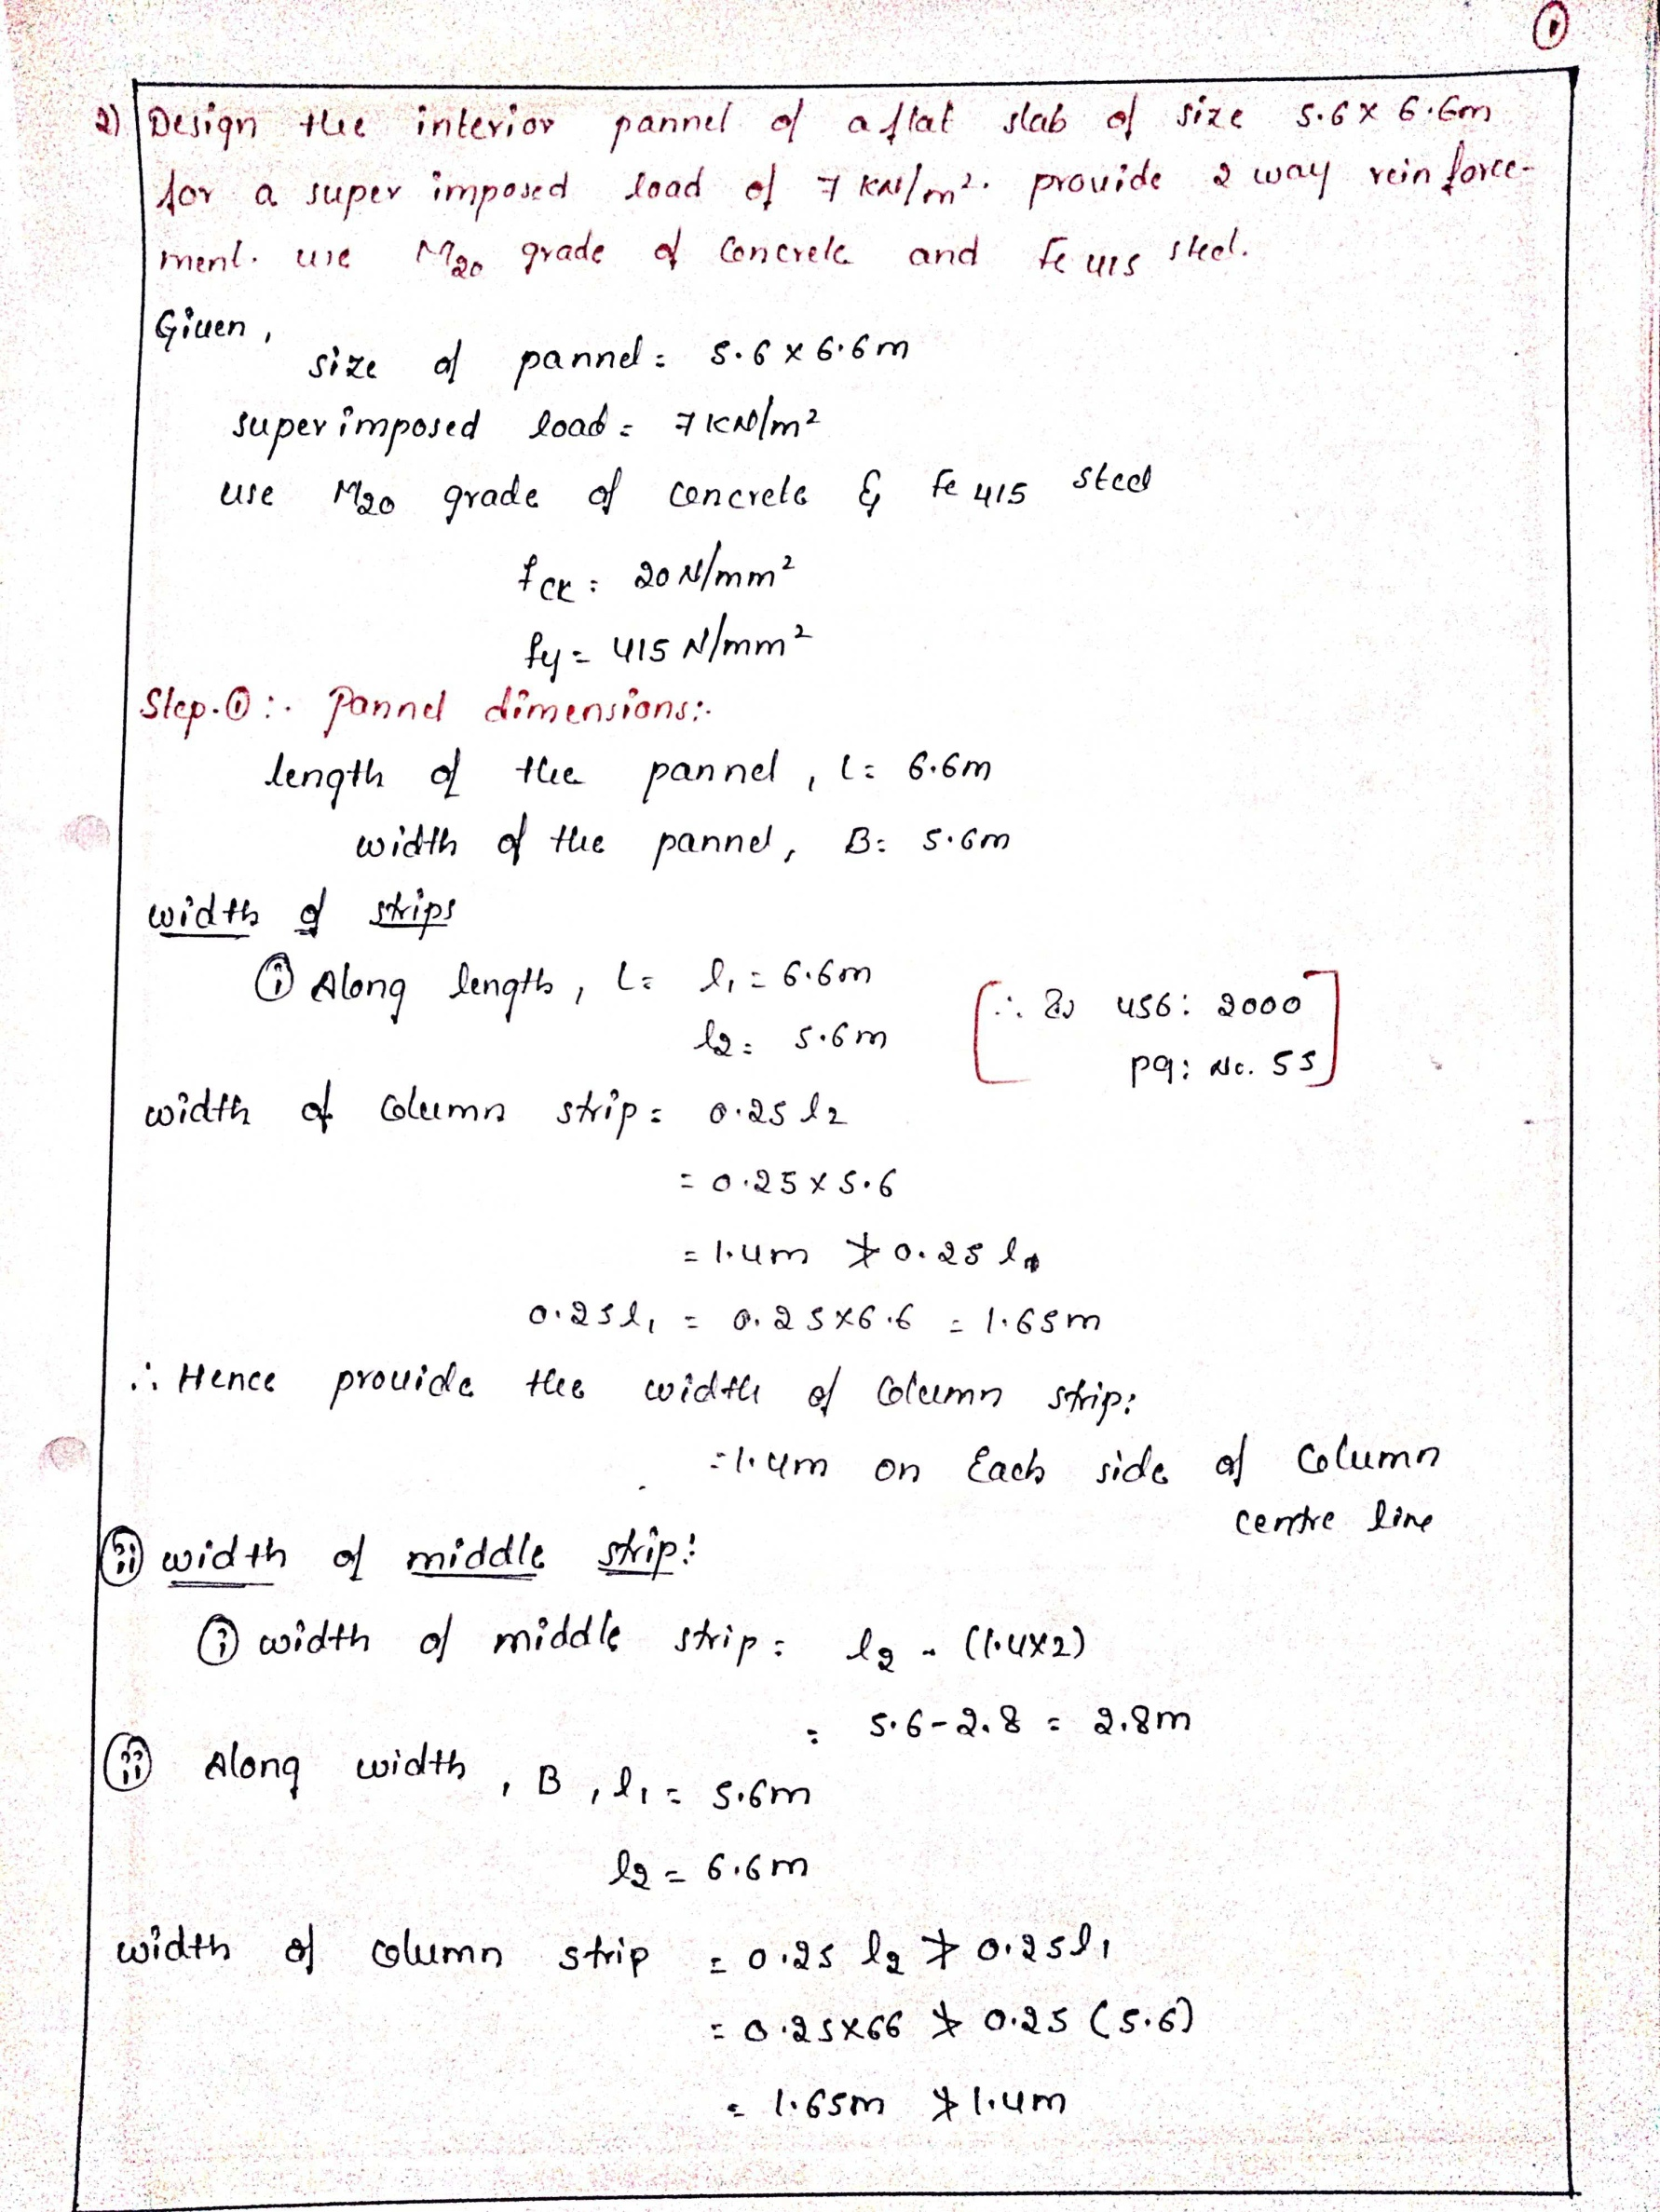 ①
2) Design the interior pannel of a flat slab of size 5.6 x 6.6m
for a super imposed load of 7 KN/m². provide 2 way reinforce-
ment. use M20 grade of Concrete and Fe 415 steel.
Given,
size of pannel = 5.6 x 6.6m
super imposed load = 7 KN/m²
use M20 grade of concrete & Fe 415 steel
fck = 20 N/mm²
fy = 415 N/mm²
Step-①:- Pannel dimensions:-
length of the pannel, L = 6.6m
width of the pannel, B = 5.6m
width of strips
① Along length, L = l1 = 6.6m
l2 = 5.6m
[∴ IS 456: 2000
pg: No. 53]
width of column strip = 0.25 l2
= 0.25 x 5.6
= 1.4m ≯ 0.25 l1
0.25 l1 = 0.25 x 6.6 = 1.65m
∴ Hence provide the width of column strip:
= 1.4m on Each side of column
centre line
ⅱ width of middle strip:
① width of middle strip = l2 - (1.4x2)
= 5.6 - 2.8 = 2.8m
ⅱ Along width, B, l1 = 5.6m
l2 = 6.6m
width of column strip = 0.25 l2 ≯ 0.25 l1
= 0.25 x 66 ≯ 0.25 (5.6)
= 1.65m ≯ 1.4m